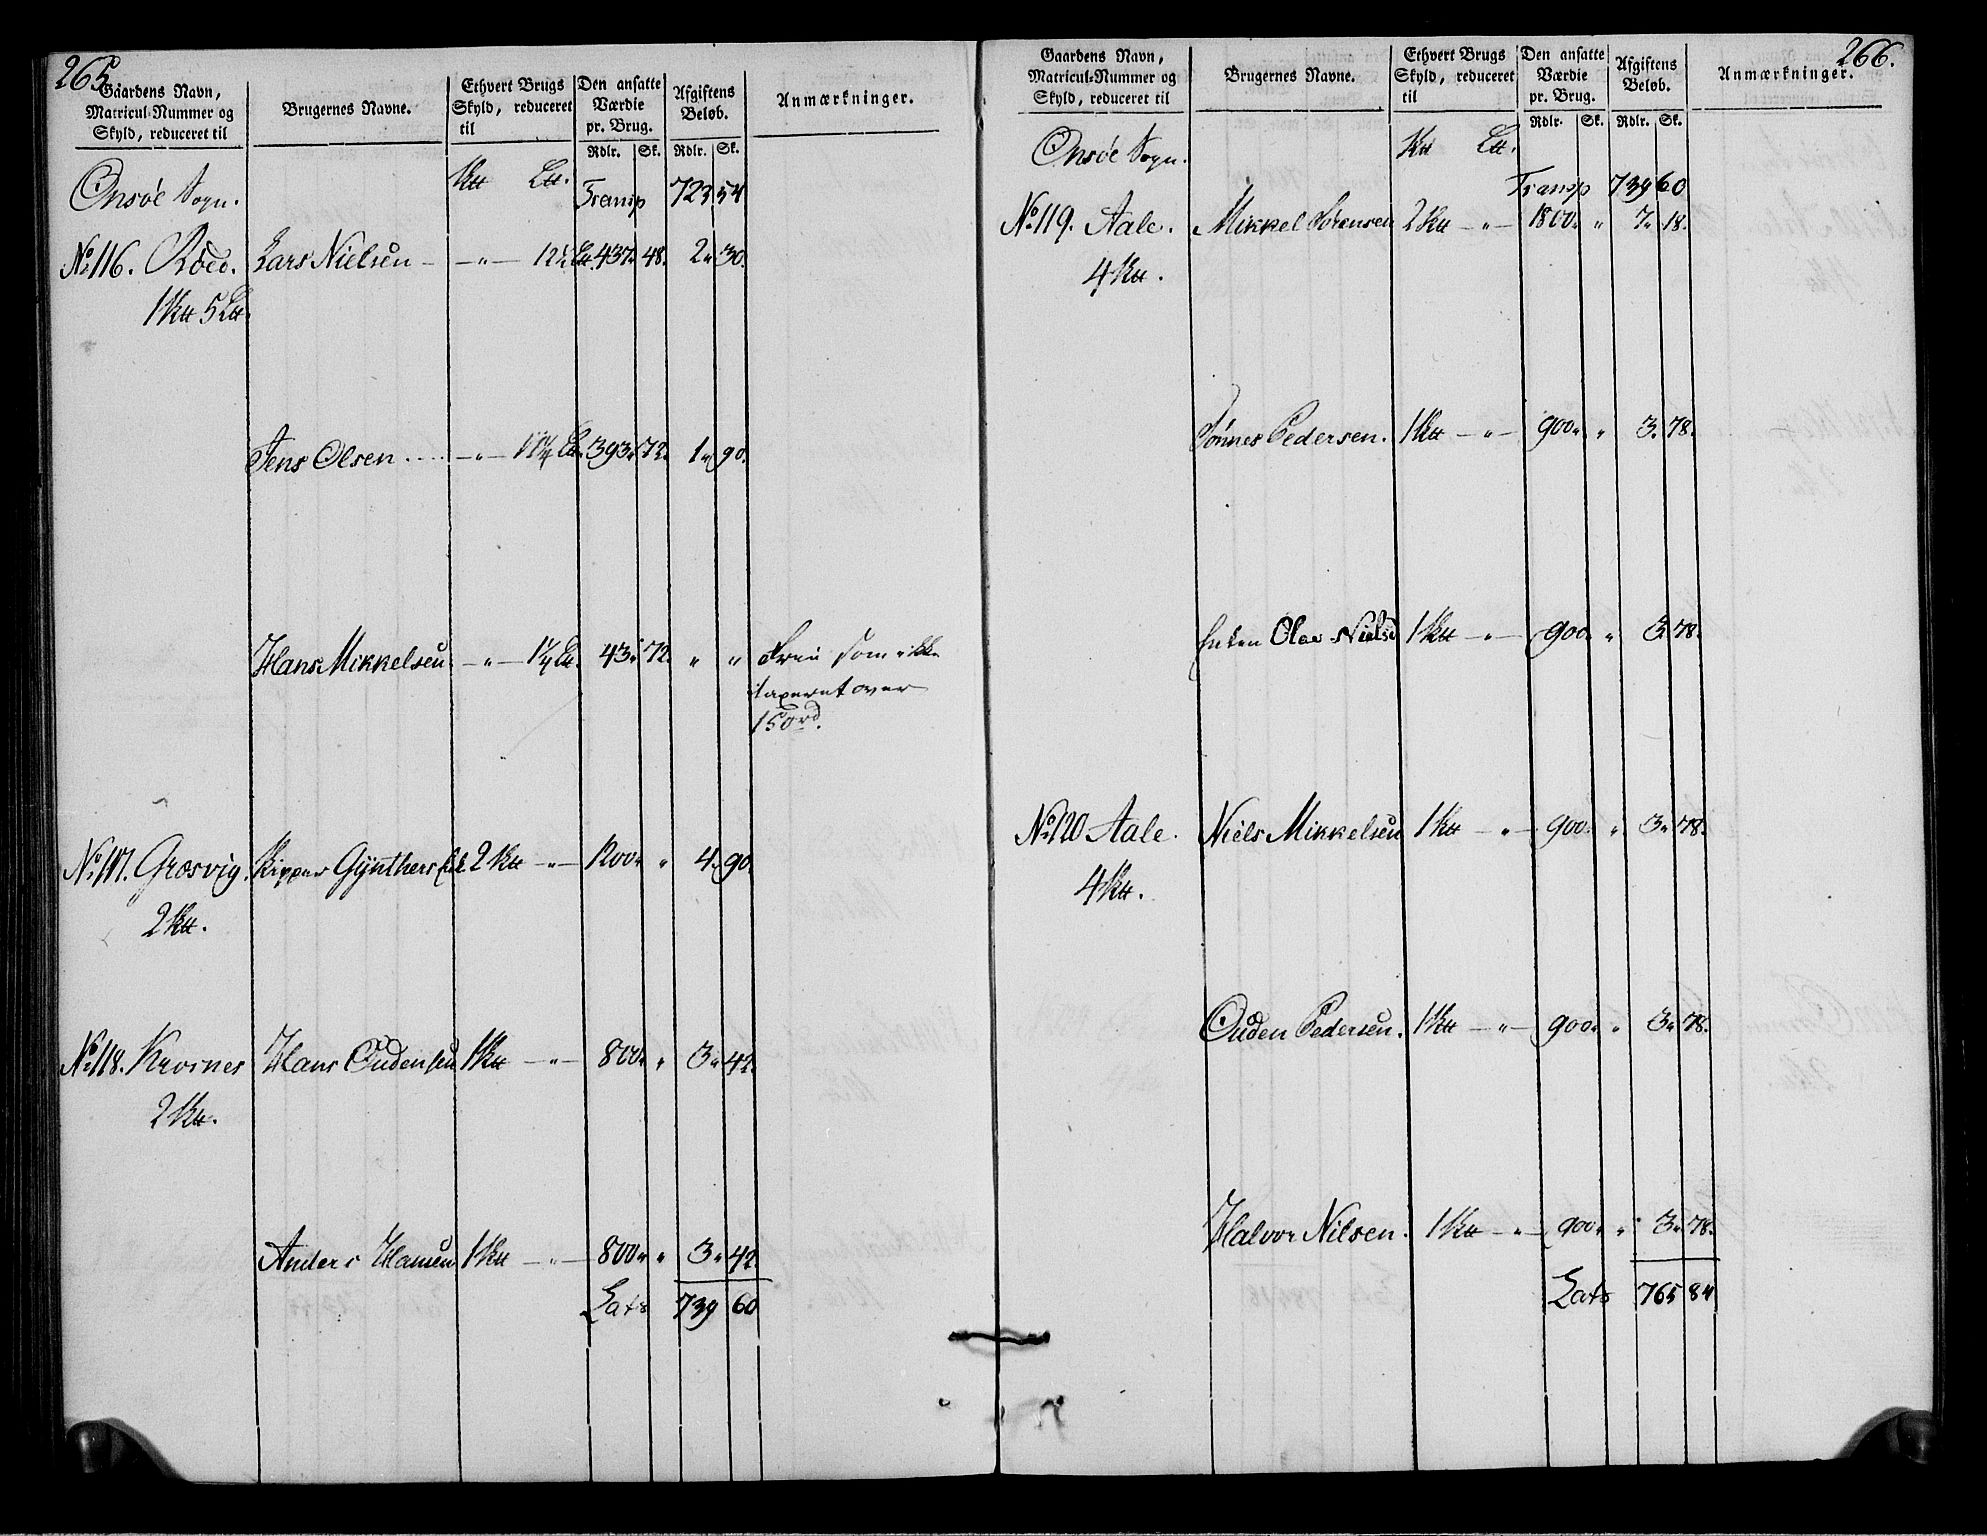 265.
Gaardens Navn, Matricul-Nummer og Skyld, reduceret til | Brugernes Navne. | Ethvert Brugs Skyld, reduceret til | Den ansatte Værdie pr. Brug. Rdlr. Sk. | Afgiftens Beløb. Rdlr. Sk. | Anmærkninger.
Onsöe Sogn. Transp 723 54
No 116. Röed. Lars Nielsen - - " - 12½ 437 " 48. 2 " 30.
Jens Olsen - " - 11¼ 393 " 72. 1 " 90.
Hans Mikkelsen - " - 1¼ 43 " 72. " " Frie som ikke
taxeret over
150rd.
No 117. Grosvig. Gÿnthers 2 - " - 1200 " " 4 " 90.
No 118. Hans Oudensen 1 - " - 800 " " 3 " 42.
Anders Hansen 1 - " - 800 " " 3 " 42.
Lats 739 60
266.
Gaardens Navn, Matricul-Nummer og Skyld, reduceret til | Brugernes Navne. | Ethvert Brugs Skyld, reduceret til | Den ansatte Værdie pr. Brug. Rdlr. Sk. | Afgiftens Beløb. Rdlr. Sk. | Anmærkninger.
Onsöe Sogn.
Transp 739 60
No 119. Aale. Mikkel Sörensen 2 - " - 1800 " " 7 " 18.
Tönnes Pedersen. 1 - " - 900 " " 3. 78.
Enken Olea Niels 1 - " - 900 " " 3. 78.
No 120 Aale. Niels Mikkelsen 1 - " - 900 " " 3 " 78.
Ouden Pedersen. 1 - " - 900 " " 3 " 78.
Halvor Nilsen. 1 - " - 900 " " 3 " 78.
Lats 765 84